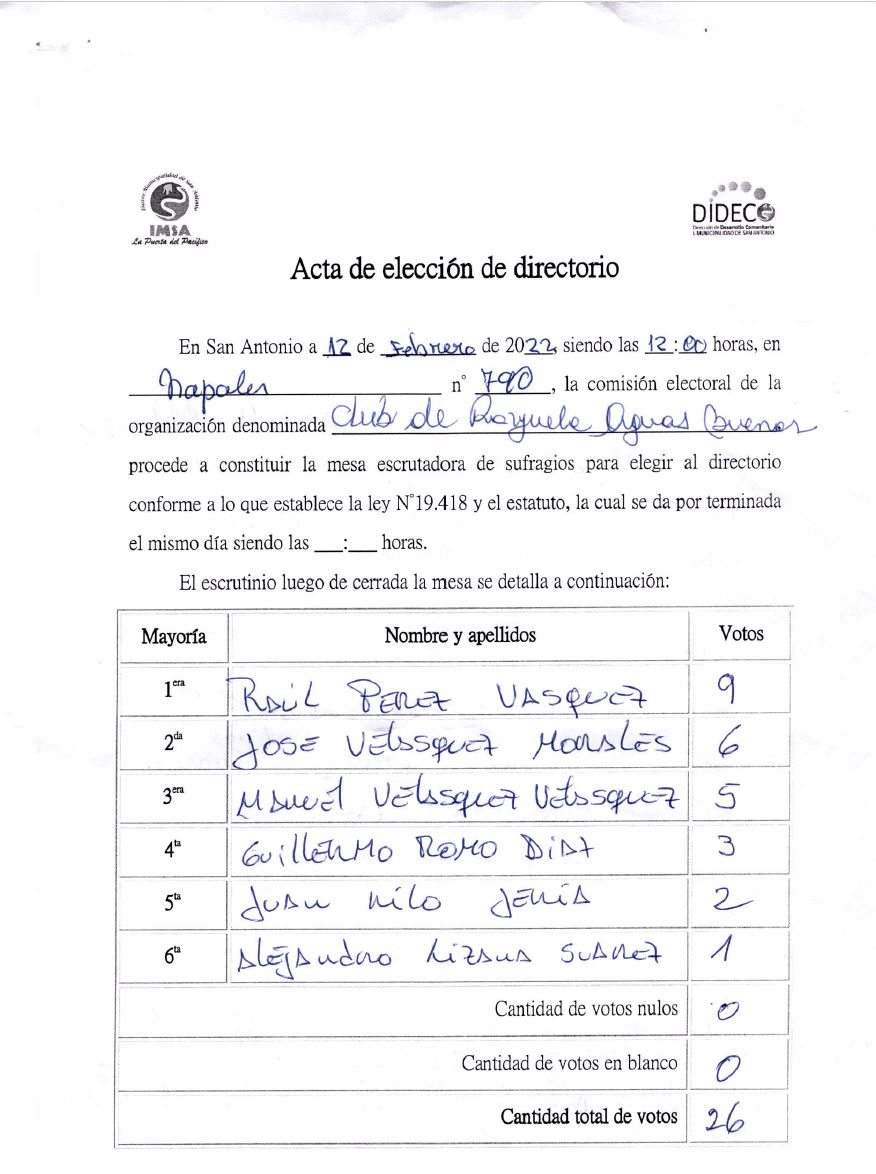 Ilustre Municipalidad de San Antonio
IMSA
La Puerta del Pacífico
DIDECO
Dirección de Desarrollo Comunitario
I. MUNICIPALIDAD DE SAN ANTONIO
Acta de elección de directorio
En San Antonio a 12 de Febrero de 2022, siendo las 12:00 horas, en
Napoles n° 790, la comisión electoral de la
organización denominada Club de Rayuela Aguas Buenas
procede a constituir la mesa escrutadora de sufragios para elegir al directorio
conforme a lo que establece la ley N°19.418 y el estatuto, la cual se da por terminada
el mismo día siendo las ___:___ horas.
El escrutinio luego de cerrada la mesa se detalla a continuación:
Mayoría Nombre y apellidos Votos
1era RAÚL PEREZ VASQUEZ 9
2da JOSE VELASQUEZ MORALES 6
3era MANUEL VELASQUEZ VELASQUEZ 5
4ta GUILLERMO ROMO DIAZ 3
5ta JUAN NILO JERIA 2
6ta ALEJANDRO LIZANA SUAREZ 1
Cantidad de votos nulos 0
Cantidad de votos en blanco 0
Cantidad total de votos 26